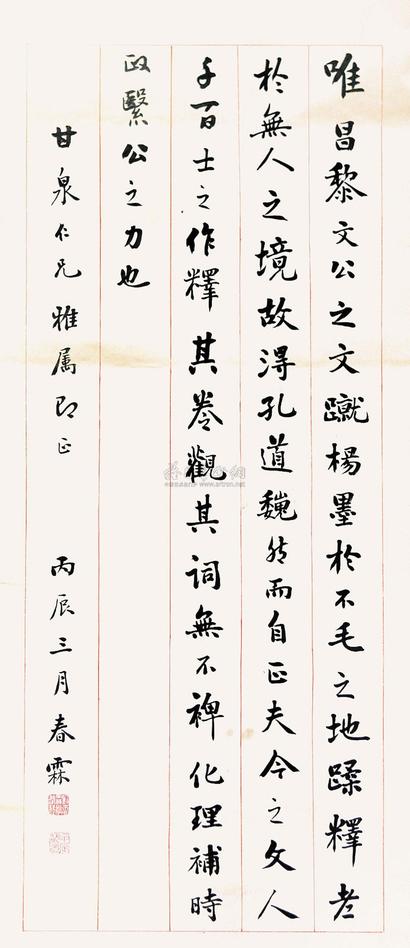 唯昌黎文公之文蹴楊墨於不毛之地蹂釋老
於無人之境故得孔道巍然而自正夫今之文人
千百士之作釋其卷觀其詞無不裨化理補時
政繄公之力也
甘泉仁兄雅属即正
丙辰三月春霖